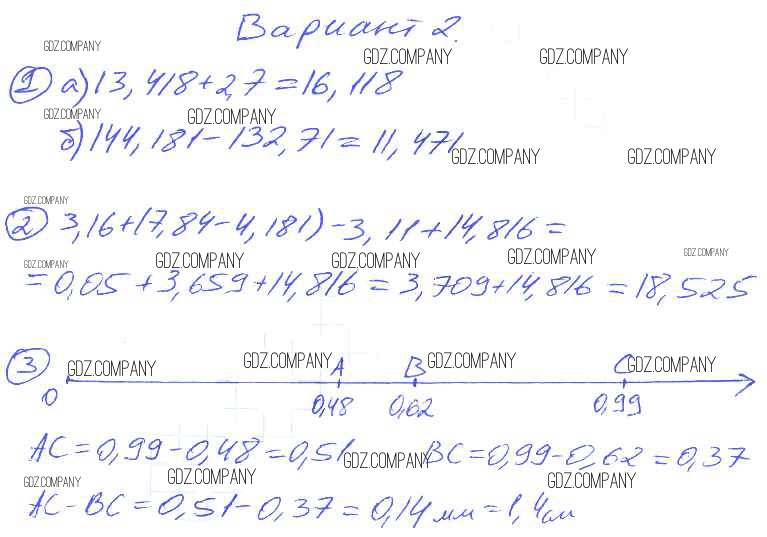 Вариант 2.
GDZ.COMPANY GDZ.COMPANY GDZ.COMPANY
1 а) 13,418+2,7=16,118
GDZ.COMPANY GDZ.COMPANY
б) 144,181-132,71=11,471
GDZ.COMPANY GDZ.COMPANY
GDZ.COMPANY
2 3,16+(7,84-4,181)-3,11+14,816=
GDZ.COMPANY GDZ.COMPANY GDZ.COMPANY GDZ.COMPANY GDZ.COMPANY
=0,05+3,659+14,816=3,709+14,816=18,525
3 GDZ.COMPANY GDZ.COMPANY A B GDZ.COMPANY C GDZ.COMPANY
0 0,48 0,62 0,99
AC=0,99-0,48=0,51 GDZ.COMPANY BC=0,99-0,62=0,37
GDZ.COMPANY GDZ.COMPANY GDZ.COMPANY
AC-BC=0,51-0,37=0,14мм=1,4см